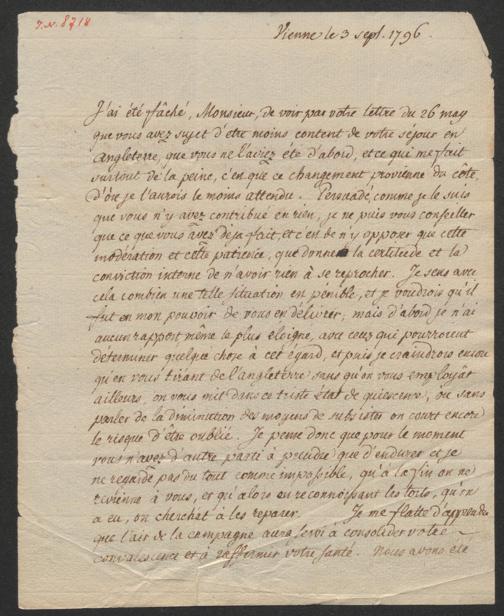 J.N. 8718
Vienne le 3 sept. 1796.
J'ai été fâché, Monsieur, de voir par votre lettre du 26 may
que vous avez sujet d'etre moins content de votre séjour en
Angleterre, que vous ne l'aviez été d'abord, et ce qui me fait
surtout de la peine, c'en que ce changement provienne du côté,
d'où je l'aurois le moins attendu. Persuadé, comme je le suis
que vous n'y avez contribué en rien, je ne puis vous conseiller
que ce que vous avez déja fait, et c'en de n'y opposer que cette
modération et cette patience, que donnent la certitude et la
conviction interne de n'avoir rien à se reprocher. Je sens avec
cela combien une telle situation en pénible, et je voudrois qu'il
fut en mon pouvoir de vous en délivrer; mais d'abord je n'ai
aucun rapport même le plus éloigné, avec ceux qui pourroient
déterminer quelque chose à cet égard, et puis je craindrois encore
qu'en vous tirant de l'Angleterre sans qu'on vous employât
ailleurs, on vous mit dans ce triste état de quiescence, où sans
parler de la diminution des moyens de subsister on court encore
le risque d'être oublié. Je pense donc que pour le moment
vous n'avez d'autre parti à prendre que d'endurer et je
ne regarde pas du tout comme impossible, qu'à la fin on ne
revienne à vous, et qu'alors en reconnoissant les torts, qu'on
a eu, on cherchât à les reparer. Je me flatte d'apprendre
que l'air de la campagne aura servi à consolider votre
convalescence et à raffermir votre santé. Nous avons été